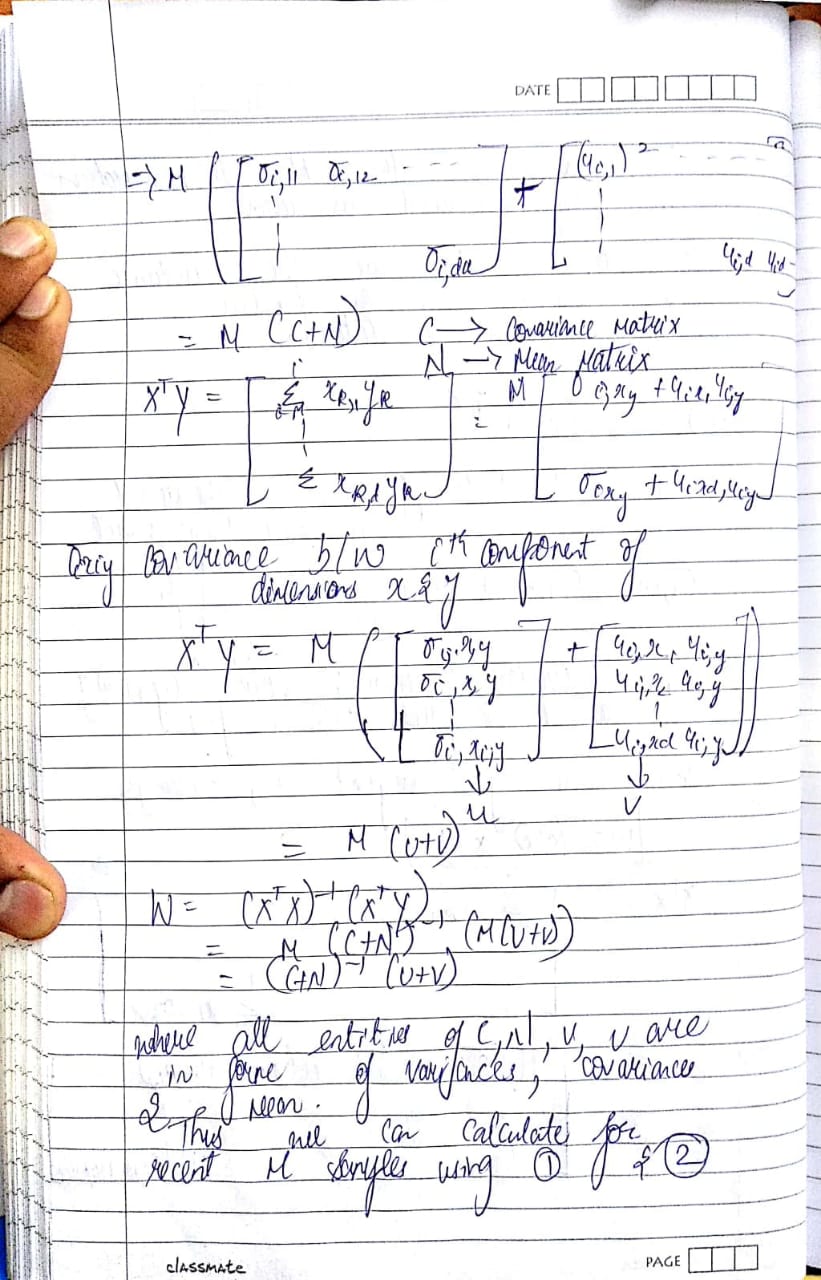 DATE
⇒ M ( [ σi,11 σi,12 - - - - σi,dd ] + [ (μi,1)² - - - - μi,d μi,d ]
= M (C+N) C → Covariance Matrix
N → Mean Matrix
XᵀY = [ Σ xk,1 yk Σ xk,d yk ] = M [ σi,xy + μi,x, μi,y σi,xy + μi,xd, μi,y ]
covariance b/w ith component of
dimensions x & y
XᵀY = M ( [ σi,x,y σi,x,y σi,xi,y ] + [ μi,x, μi,y μi,x, μi,y μi,xd μi,y ] )
u v
= M (U+V)
W = (XᵀX)⁻¹ (XᵀY)
= M (C+N)⁻¹ (M(U+V))
= (C+N)⁻¹ (U+V)
where all entities of C, N, U, V are
in form of variances, covariances
& Mean.
Thus we can calculate for
recent M samples using ① & ②
classmate
PAGE